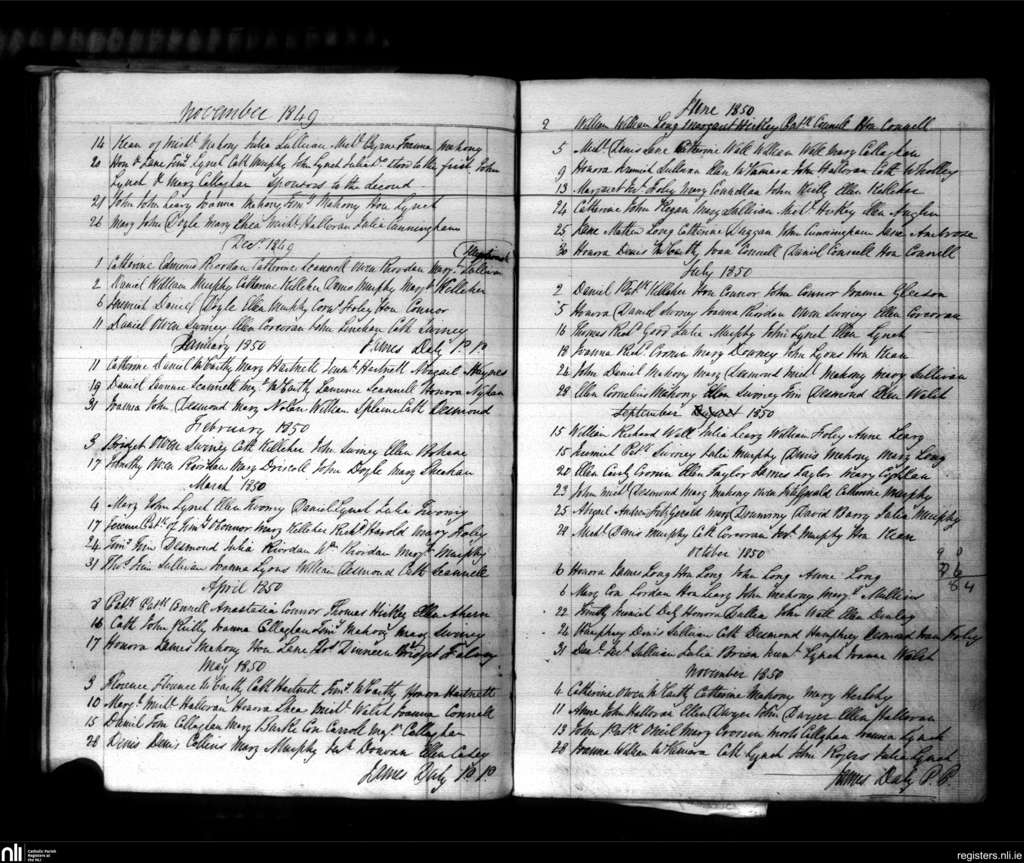 November 1849
14 Kean of Mich.l Mahony Julia Sullivan Mich.l Byrne Joanna Mahony
20 Hon & Jane Tim.y Lynch Cath Murphy John Lynch to the first John
Lynch & Mary Callaghan Sponsors to the second
21 John John Leary Joanna Mahony Mahony Hon Lynch
26 Mary John Doyle Mary Shea Mich.l Halloran Julia Cunningham
Dec.r 1849
1 Catherine Edmond Riordan Catherine Scannell Owen Riordan Mary Sullivan
2 Daniel William Murphy Catherine Kelleher Murphy Mary Kelleher
6 Jeremiah Daniel Doyle Ellen Murphy Corn.s Foley Hon Connor
11 Daniel Owen Surney Ellen Corcoran John Linehan Cath Surney
January 1850 James Daly P. P.
11 Catherine Daniel McCarthy Mary Hartnett Hartnett Abigail Haynes
19 Daniel Laurence Scannell McCarthy Laurence Scannell Honora Nylan
31 Joanna John Desmond Mary Nolan William Cath Desmond
February 1850
3 Bridget Owen Surney Cath Kelleher John Surney Ellen
17 Timothy Owen Riordan Mary Driscoll John Doyle Mary Sheehan
March 1850
4 Mary John Lynch Ellen Twomy Daniel Lynch Julia Twomy
17 O'Connor Mary Kelleher Rich.d Harold Mary Foley
24 Tim.y Desmond Julia Riordan Wm Riordan Marg.t Murphy
31 Tho.s Sullivan Joanna Lyons William Desmond Cath Scannell
April 1850
2 Patk Patk Connell Anastasia Connor Thomas Hickey Ellen Ahern
16 Cath John Reilly Joanna Callaghan Tim.y Mahony Mary Surney
17 Honora James Mahony Hon Lane Dinneen Bridget Falvey
May 1850
3 Florence Florence McCarthy Cath Hartnett Tim.y McCarthy Honora Hartnett
10 Mary Mich.l Halloran Honora Shea Mich.l Walsh Joanna Connell
15 Daniel Callaghan Mary Burke Con Carroll Callaghan
28 Denis Denis Collins Mary Murphy Donovan Ellen
James Daly P P
June 1850
2 William William Long Margaret Hickley Patk Connell Hon Connell
5 Mich.l Denis Lane Catherine Wall William Wall Mary Callaghan
9 Honora Darmit Sullivan Ellen McNamara John Halloran Cath Wholley
13 Margaret Foley Mary Connellan John Reilly Ellen Kelleher
24 Catherine John Regan Mary Sullivan Mich.l Ellen Anglin
25 Jane Mathew Long Catherine Duggan John Cunningham Jane Ambrose
30 Honora Denis McCarthy Joan Connell Daniel Connell Hon Connell
July 1850
2 Daniel Patk Kelleher Hon Connor John Connor Joanna Gleeson
5 Honora Daniel Surney Joanna Riordan Owen Surney Ellen Corcoran
16 Thomas Rich.d Good Julia Murphy John Lynch Ellen Lynch
18 Joanna Rich.d Cronin Mary Downey John Lyons Hon Kean
24 John Daniel Mahony Mary Desmond Mich.l Mahony Mary Sullivan
28 Ellen Cornelius Mahony Ellen Surney Desmond Ellen Walsh
September 1850
15 William Richard Wall Julia Leary William Foley Anne Leary
15 Jeremiah Patk Surney Julia Murphy Denis Mahony Mary Long
20 Ellen Cronin Ellen Taylor James Taylor Mary
23 John Mich.l Desmond Mary Mahony Owen Fitzgerald Catherine Murphy
25 Abigail Andrew Fitzgerald Mary David Barry Julia Murphy
28 Mich.l Denis Murphy Cath Corcoran Murphy Hon Kean
October 1850
6 Honora James Long Hon Long John Long Anne Long
6 Mary Con Jordan Hon Leary John Mahony Mullins
22 Jeremiah Daly Honora John Wall Ellen
26 Humphrey Denis Sullivan Cath Desmond Humphrey Desmond Foley
31 Sullivan Julia Brien Lynch Joanna Walsh
November 1850
4 Catherine Owen McCarthy Catherine Mahony Mary Herlihy
11 Anne John Halloran Ellen Dwyer John Dwyer Ellen Halloran
13 John Patk Oneil Mary Callaghan Joanna Lynch
28 Joanna William McNamara Cath Lynch John Rogers Julia Lynch
James Daly P. P.
nli Catholic Parish Registers at the NLI
registers.nli.ie